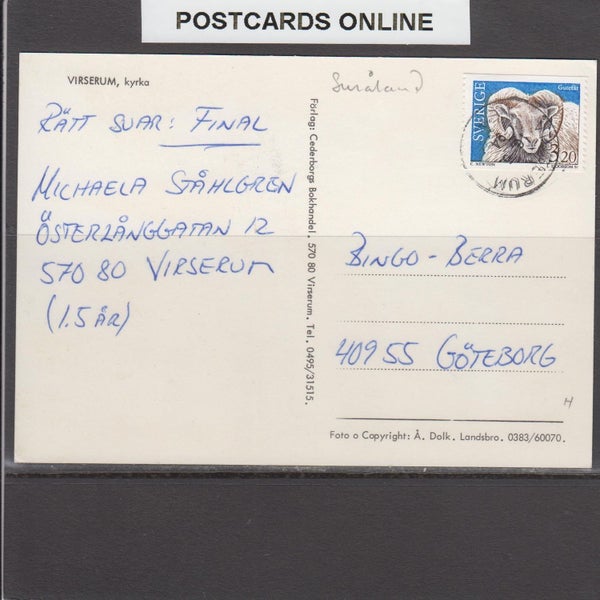 POSTCARDS ONLINE
VIRSERUM, kyrka
RÄTT SVAR: FINAL
MICHAELA STÅHLGREN
ÖSTERLÅNGGATAN 12
570 80 VIRSERUM
(1.5 ÅR)
Förlag: Cederborgs Bokhandel. 570 80 Virserum. Tel. 0495/31515.
Småland
SVERIGE
Gutefår
3,20
ERUM
BINGO-BERRA
409 55 GÖTEBORG
H
Foto o Copyright: Å. Dolk. Landsbro. 0383/60070.